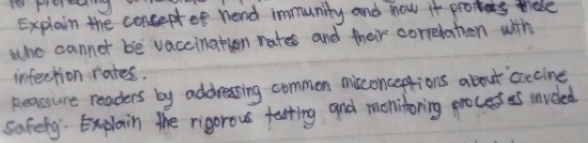 to protecting
Explain the concept of hend immunity and how it protects those
who cannot be vaccination rates and their correlation with
infection rates.
Reassure readers by addressing common misconceptions about vaccine
safety. Explain the rigorous testing and monitoring processes involved